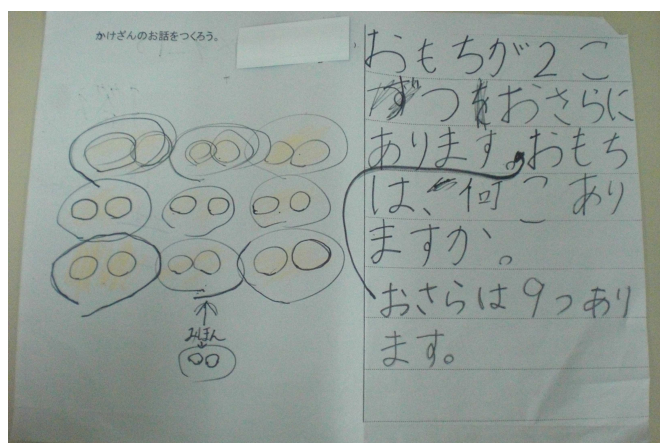 かけざんのお話をつくろう。
みほん
おもちが2こ
ずつおさらに
あります。おもち
は、何こあり
ますか。
おさらは9つあり
ます。